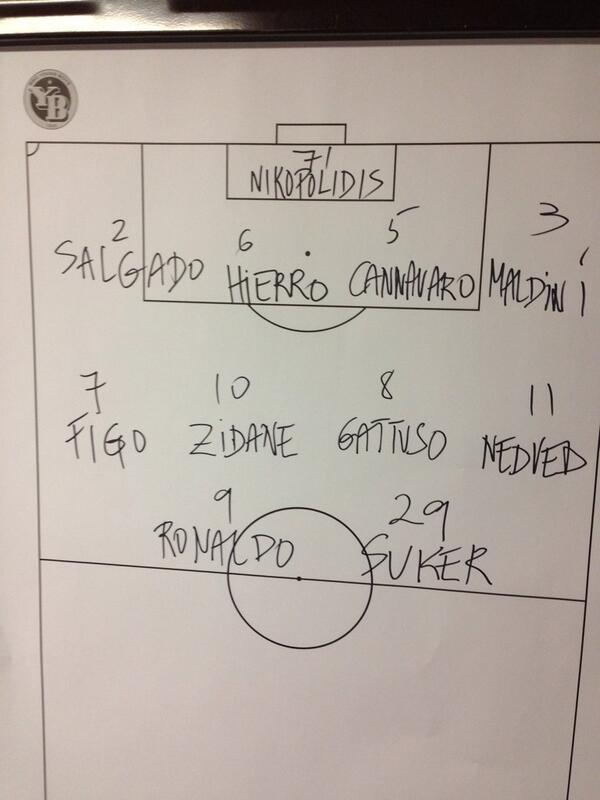 YB
71
NIKOPOLIDIS
2 6 5 3
SALGADO HIERRO CANNAVARO MALDINI
7 10 8 11
FIGO ZIDANE GATTUSO NEDVED
9 29
RONALDO SUKER